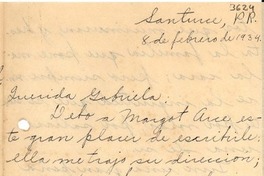 3624
Santurce, P.R.
8 de febrero de 1934.
Querida Gabriela:
Debo a Margot Arce es-
te gran placer de escribirle;
ella me trajo su direccion;